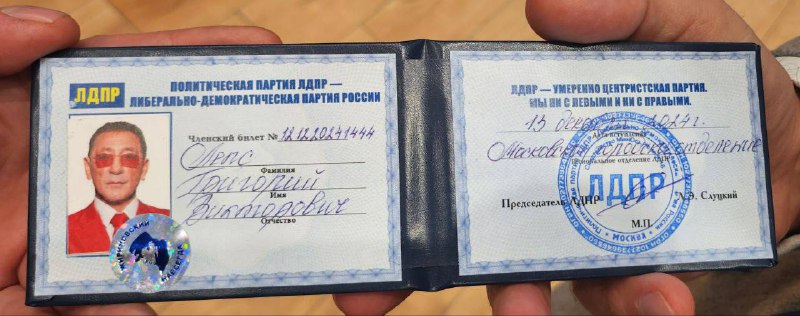 ЛДПР
ПОЛИТИЧЕСКАЯ ПАРТИЯ ЛДПР —
ЛИБЕРАЛЬНО-ДЕМОКРАТИЧЕСКАЯ ПАРТИЯ РОССИИ
Членский билет № 12.12.20241444
Лепс
Фамилия
Григорий
Имя
Викторович
Отчество
ЛДПР — УМЕРЕННО ЦЕНТРИСТСКАЯ ПАРТИЯ.
МЫ НИ С ЛЕВЫМИ И НИ С ПРАВЫМИ.
13 2024 г.
Дата вступления
Московское отделение
Региональное отделение ЛДПР
ЛДПР
Председатель ЛДПР Л.Э. Слуцкий
М.П.
МОСКВА